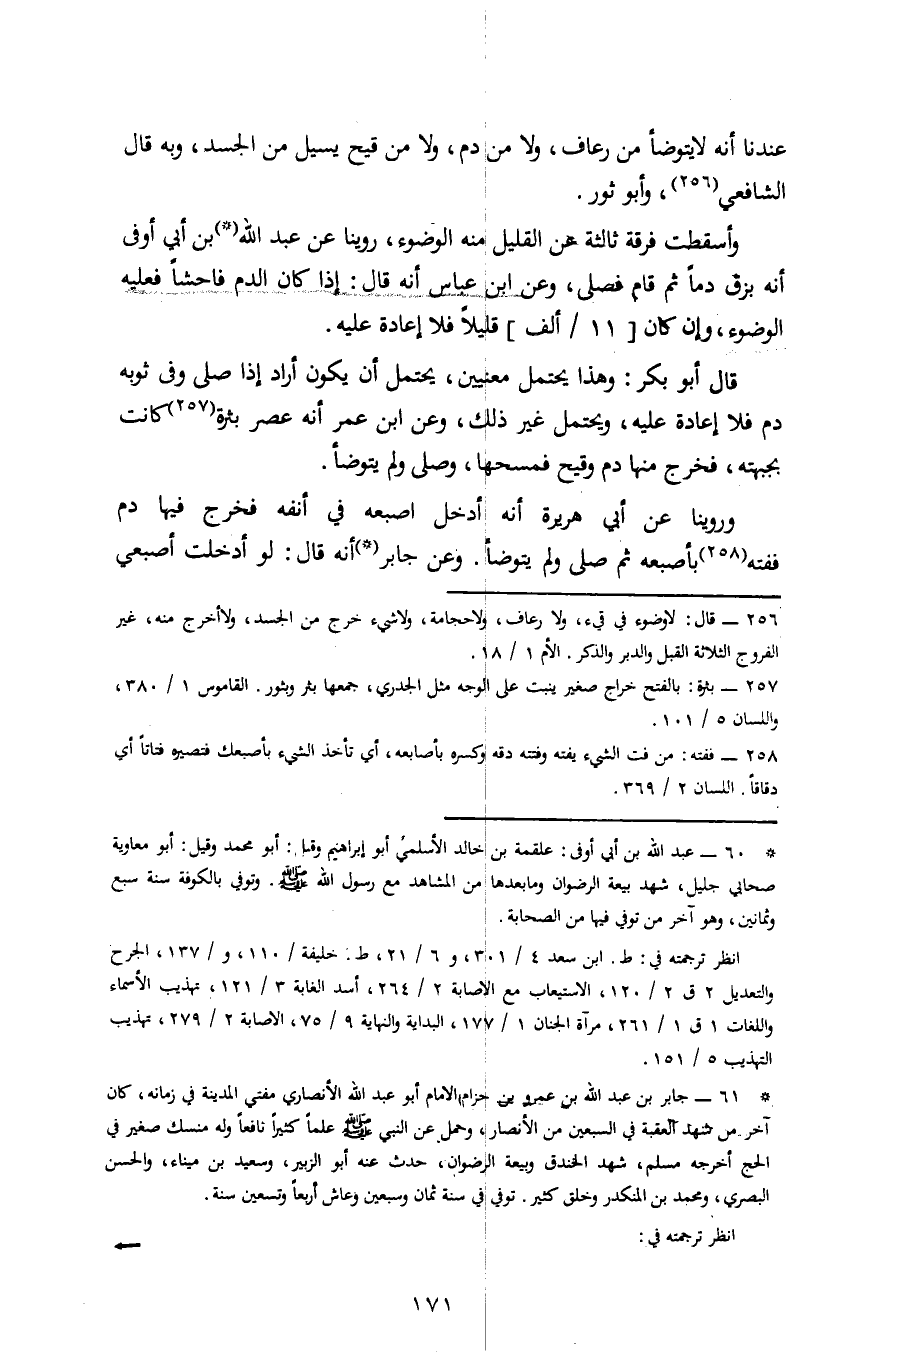 عندنا أنه لايتوضأ من رعاف، ولا من دم، ولا من قيح يسيل من الجسد، وبه قال
الشافعي(٢٥٦)، وأبو ثور .
وأسقطت فرقة ثالثة عن القليل منه الوضوء، روينا عن عبد الله(*)بن أبي أوفى
أنه بزق دماً ثم قام فصلى، وعن ابن عباس أنه قال: إذا كان الدم فاحشاً فعليه
الوضوء، وإن كان [ ١١ / ألف ] قليلاً فلا إعادة عليه.
قال أبو بكر: وهذا يحتمل معنيين، يحتمل أن يكون أراد إذا صلى وفى ثوبه
دم فلا إعادة عليه، ويحتمل غير ذلك، وعن ابن عمر أنه عصر بثرة(٢٥٧)كانت
بجبهته، فخرج منها دم وقيح فمسحها، وصلى ولم يتوضأ.
وروينا عن أبي هريرة أنه أدخل اصبعه في أنفه فخرج فيها دم
ففته(٢٥٨)بأصبعه ثم صلى ولم يتوضأ. وعن جابر(*)أنه قال: لو أدخلت أصبعي
٢٥٦ ــ قال: لاوضوء في قيء، ولا رعاف، ولاحجامة، ولاشيء خرج من الجسد، ولاأخرج منه، غير
الفروج الثلاثة القبل والدبر والذكر. الأم ١ / ١٨.
٢٥٧ ــ بثرة: بالفتح خراج صغير ينبت على الوجه مثل الجدري، جمعها بثر وبثور. القاموس ١ / ٣٨٠،
واللسان ٥ / ١٠١.
٢٥٨ ــ ففته: من فت الشيء يفته وفتته دقه وكسره بأصابعه، أي تأخذ الشيء بأصبعك فتصيره فتاتاً أي
دقاقاً. اللسان ٢ / ٣٦٩.
* ٦٠ ــ عبد الله بن أبي أوفى: علقمة بن خالد الأسلمي أبو إبراهيم وقيل: أبو محمد وقيل: أبو معاوية
صحابي جليل، شهد بيعة الرضوان ومابعدها من المشاهد مع رسول الله ﷺ. وتوفي بالكوفة سنة سبع
وثمانين، وهو آخر من توفي فيها من الصحابة.
انظر ترجمته في: ط. ابن سعد ٤ / ٣٠١، و ٦ / ٢١، ط. خليفة / ١١٠، و / ١٣٧، الجرح
والتعديل ٢ ق ٢ / ١٢٠، الاستيعاب مع الاصابة ٢ / ٢٦٤، أسد الغابة ٣ / ١٢١، تهذيب الأسماء
واللغات ١ ق ١ / ٢٦١، مرآة الجنان ١ / ١٧٧، البداية والنهاية ٩ / ٧٥، الاصابة ٢ / ٢٧٩، تهذيب
التهذيب ٥ / ١٥١.
* ٦١ ــ جابر بن عبد الله بن عمرو بن حزام الامام أبو عبد الله الأنصاري مفتي المدينة في زمانه، كان
آخر من شهد العقبة في السبعين من الأنصار، وحمل عن النبي ﷺ علماً كثيراً نافعاً وله منسك صغير في
الحج أخرجه مسلم، شهد الخندق وبيعة الرضوان، حدث عنه أبو الزبير، وسعيد بن ميناء، والحسن
البصري، ومحمد بن المنكدر وخلق كثير. توفي في سنة ثمان وسبعين وعاش أربعاً وتسعين سنة.
انظر ترجمته في:
١٧١